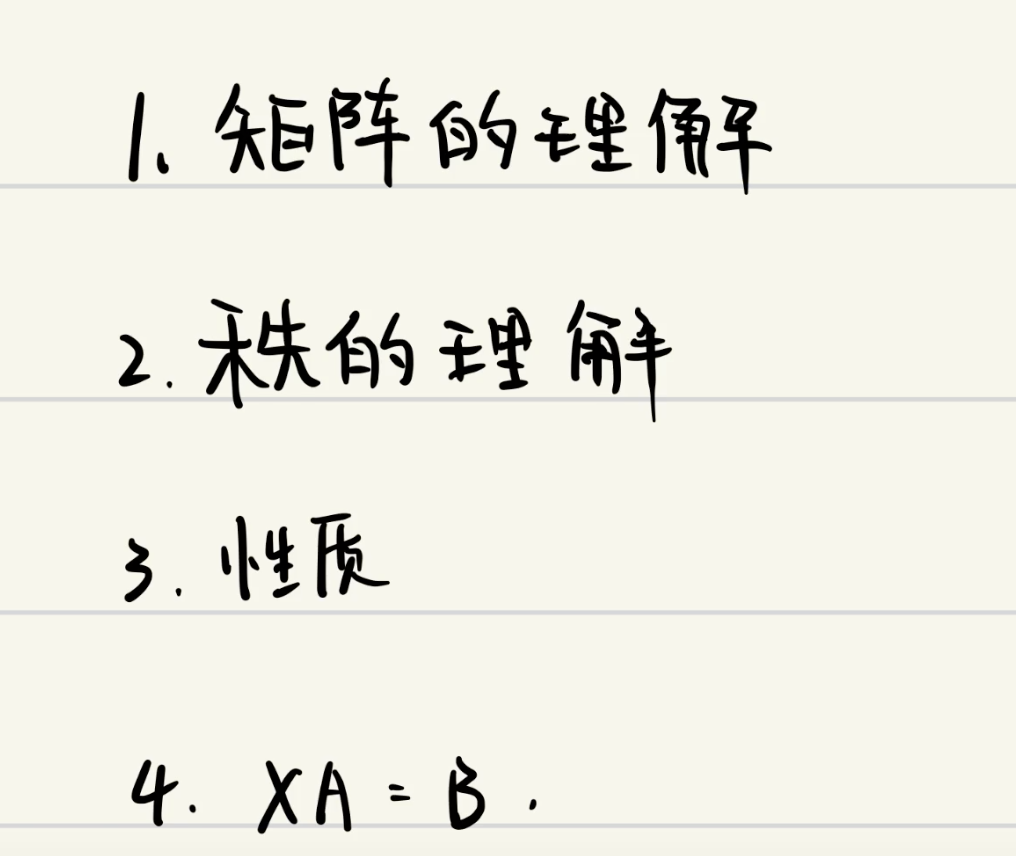 1. 矩阵的理解
2. 秩的理解
3. 性质
4. XA = B.